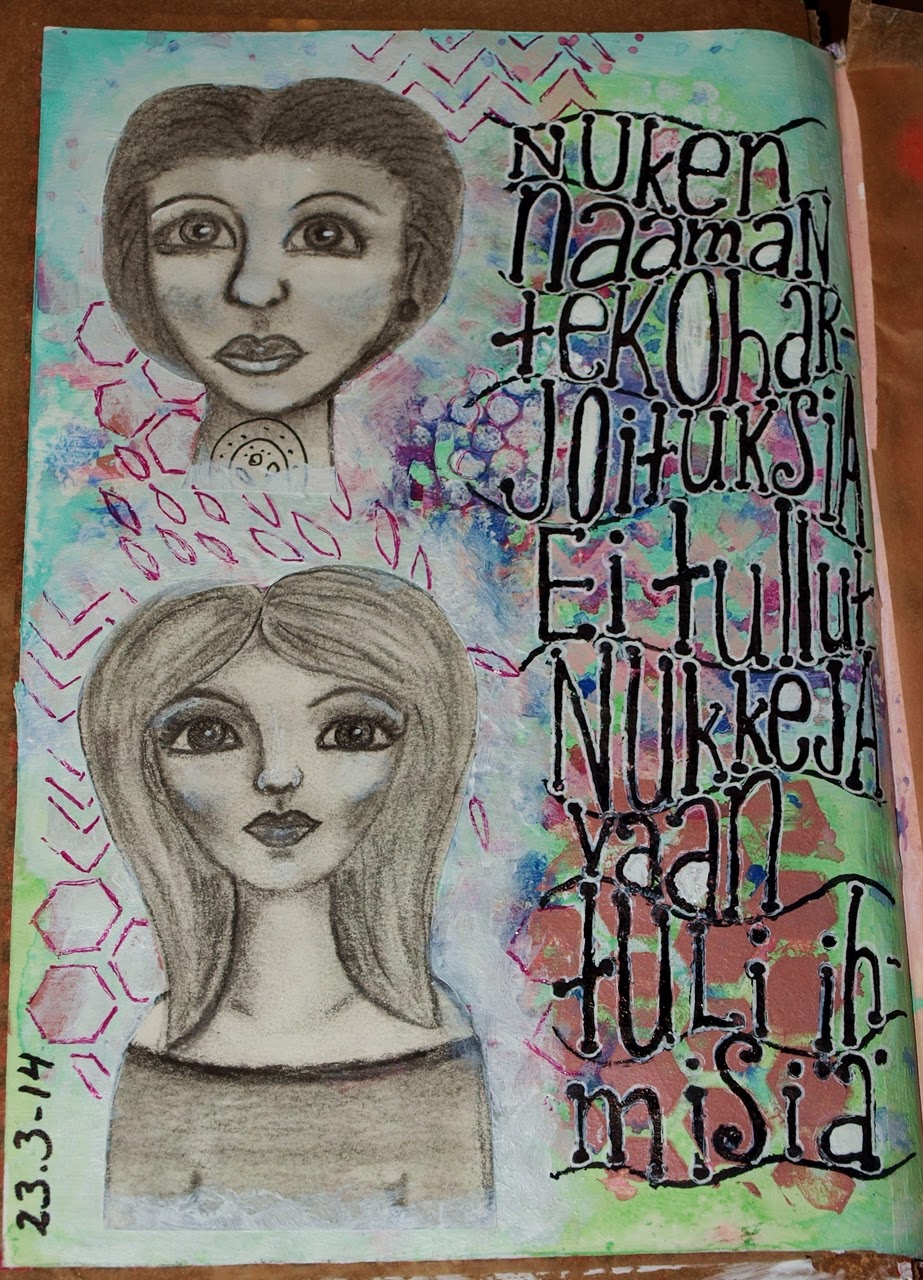 NUKEN
NaamaN
tekOhaR-
JOituKSiA
Ei tullut
NUKKEJA
vaan
tULi ih-
miSiä
23.3-14